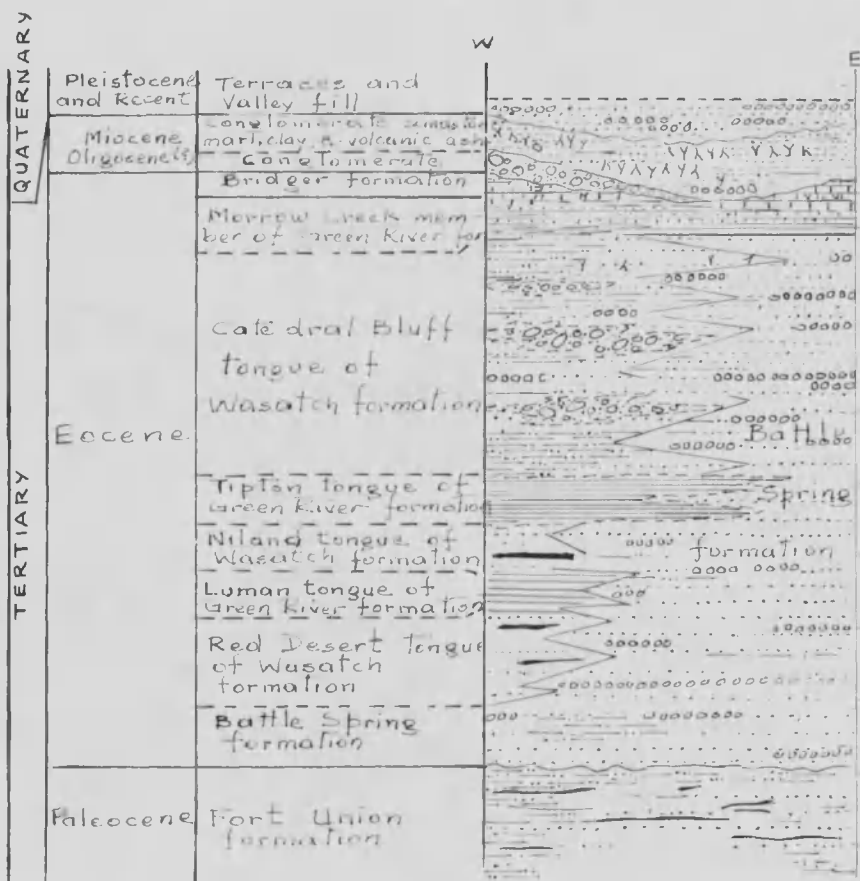 W
E
QUATERNARY
TERTIARY
Pleistocene
and Recent
Terraces and
Valley fill
Miocene
Oligocene(?)
Conglomerate
marl, clay & volcanic ash
Conglomerate
Eocene
Bridger formation
Morrow Creek mem
ber of Green River for
Catedral Bluff
tongue of
Wasatch formation
Tipton tongue of
Green River formation
Niland tongue of
Wasatch formation
Luman tongue of
Green River formation
Red Desert Tongue
of Wasatch
formation
Battle Spring
formation
Paleocene
Fort Union
formation
Battle
Spring
formation